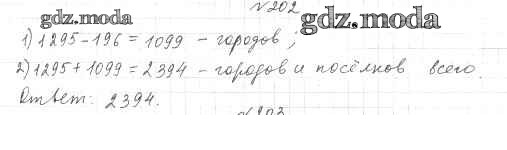 №202
gdz.moda gdz.moda
1) 1295-196 = 1099 - городов;
2) 1295+1099=2394 - городов и посёлков всего.
Ответ: 2394.
№203